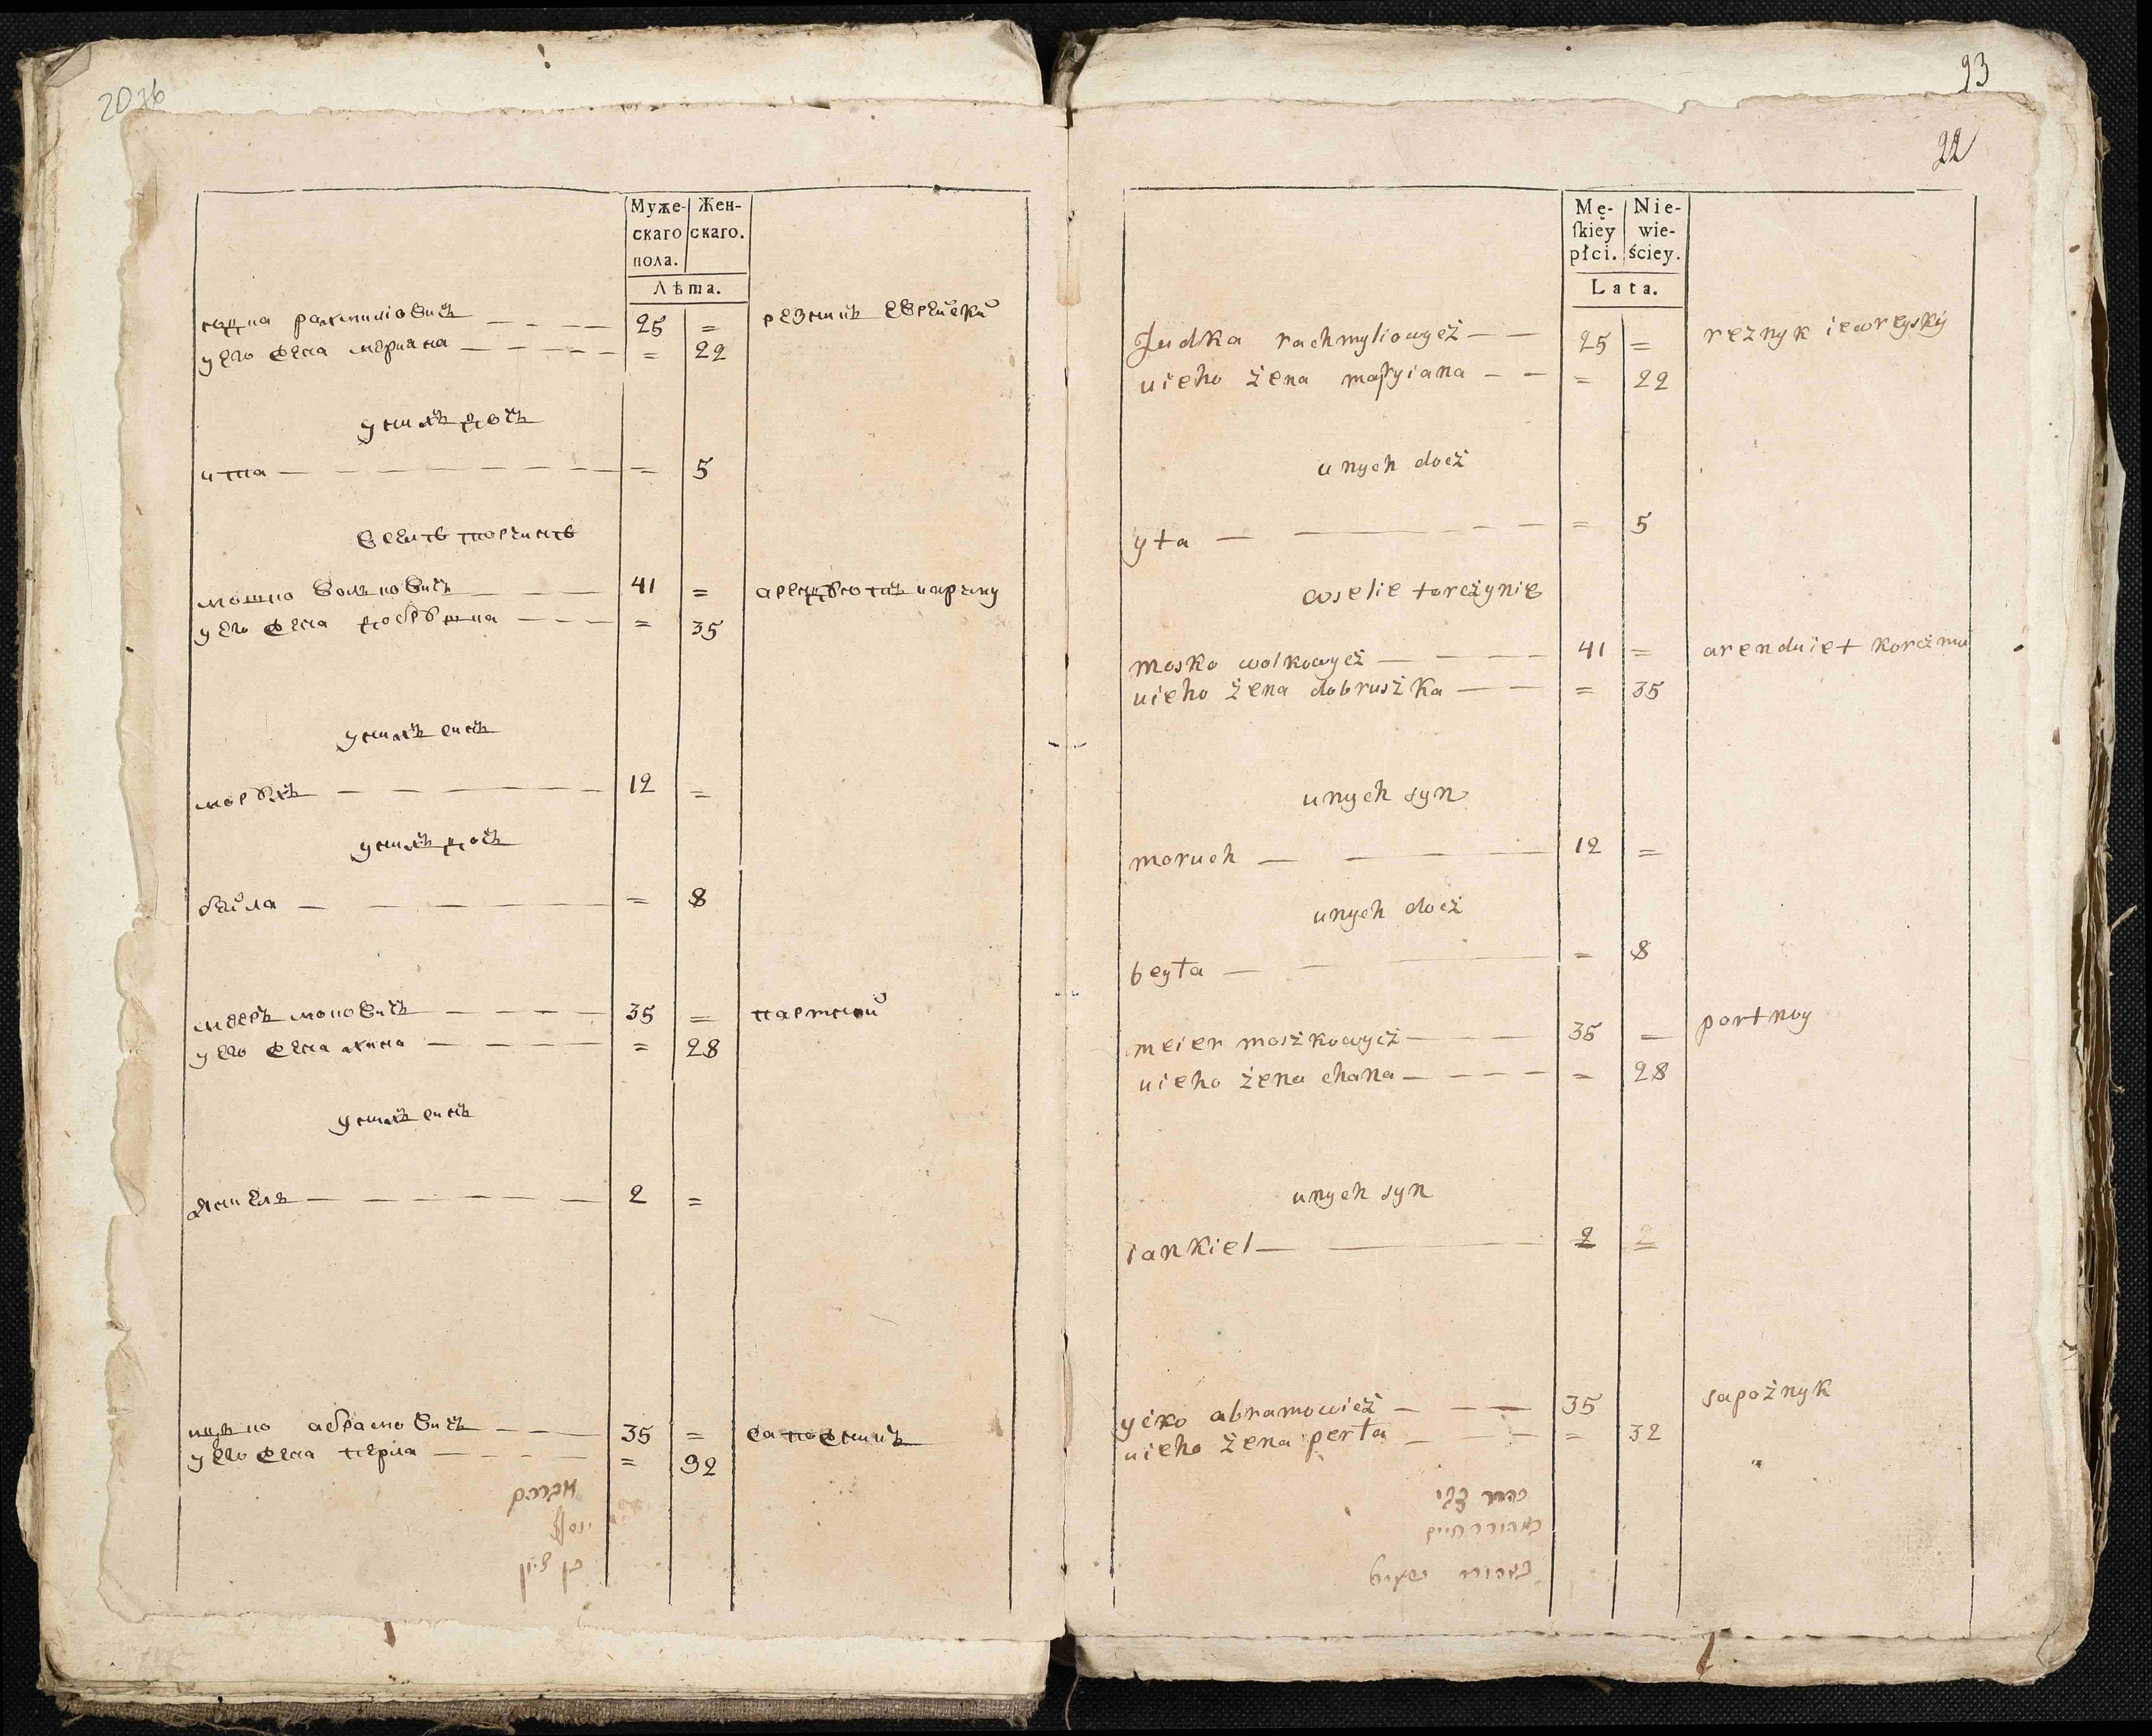 Муже- Жен-
скаго скаго.
пола.
Лѣта.
юдка рахмиліовичъ 25 = резникъ евреискй
у его жена мериана = 22
у нихъ дочъ
ита = 5
в селѣ торчинѣ
мошко волковичъ 41 = арендуютъ корчму
у его жена добрушка = 35
у нихъ синъ
морухъ 12 =
у нихъ дочъ
бейла = 8
меєръ мошковичъ 35 = партной
у его жена хана = 28
у нихъ синъ
янкель 2 =
ицко абрамовичъ 35 = сапожникъ
у его жена перла = 32
אברהם
יוסף
93
22
Mę- Nie-
ſkiey wie-
płci. ściey.
Lata.
Judka rachmyliowycż 25 = reznyk iewreyskiy
uieho żena maryiana = 22
unych docż
yta = 5
wselie torcżynie
mosko wolkowycż 41 = arenduiet korcżmu
uieho żena dobruszka = 35
unych syn
moruch 12 =
unych docż
beyła = 8
meier moszkowycż 35 = portnoy
uieho żena chana = 28
unych syn
iankiel 2 =
ycko abramowicż 35 sapożnyk
uieho żena perła = 32